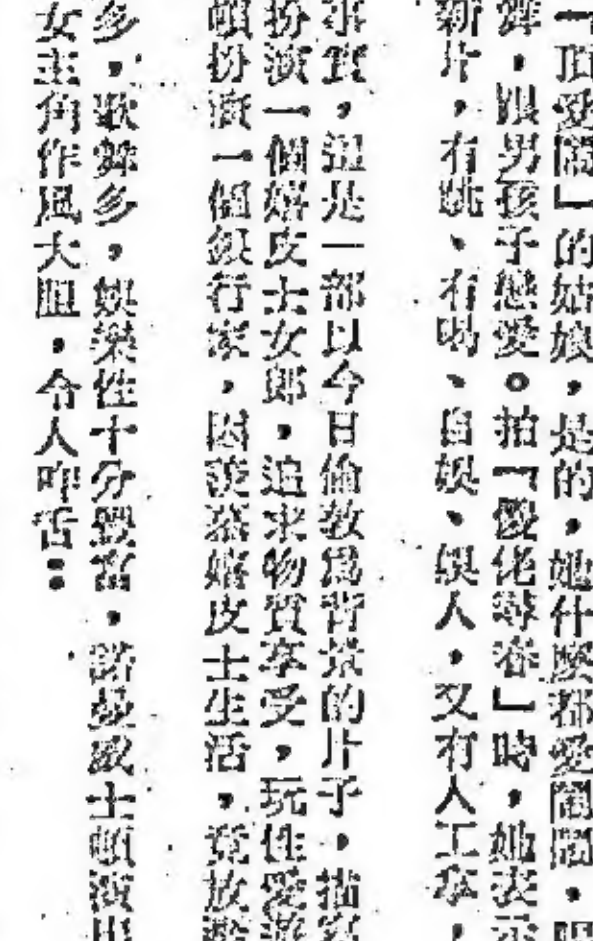 「頂愛鬧」的姑娘，是的，她什麼都愛鬧鬧，跟
舞，跟男孩子戀愛。拍「傻佬尋春」時，她表示
新片，有跳、有喝、自娛、娛人，又有人工享，
事實，這是一部以今日倫敦爲背景的片子，描寫
扮演一個嬉皮士女郎，追求物質享受，玩性愛遊
頓扮演一個銀行家，因羨慕嬉皮士生活，竟放棄
多，歌舞多，娛樂性十分豐富，諾曼威士頓演出
女主角作風大胆，令人咋舌：